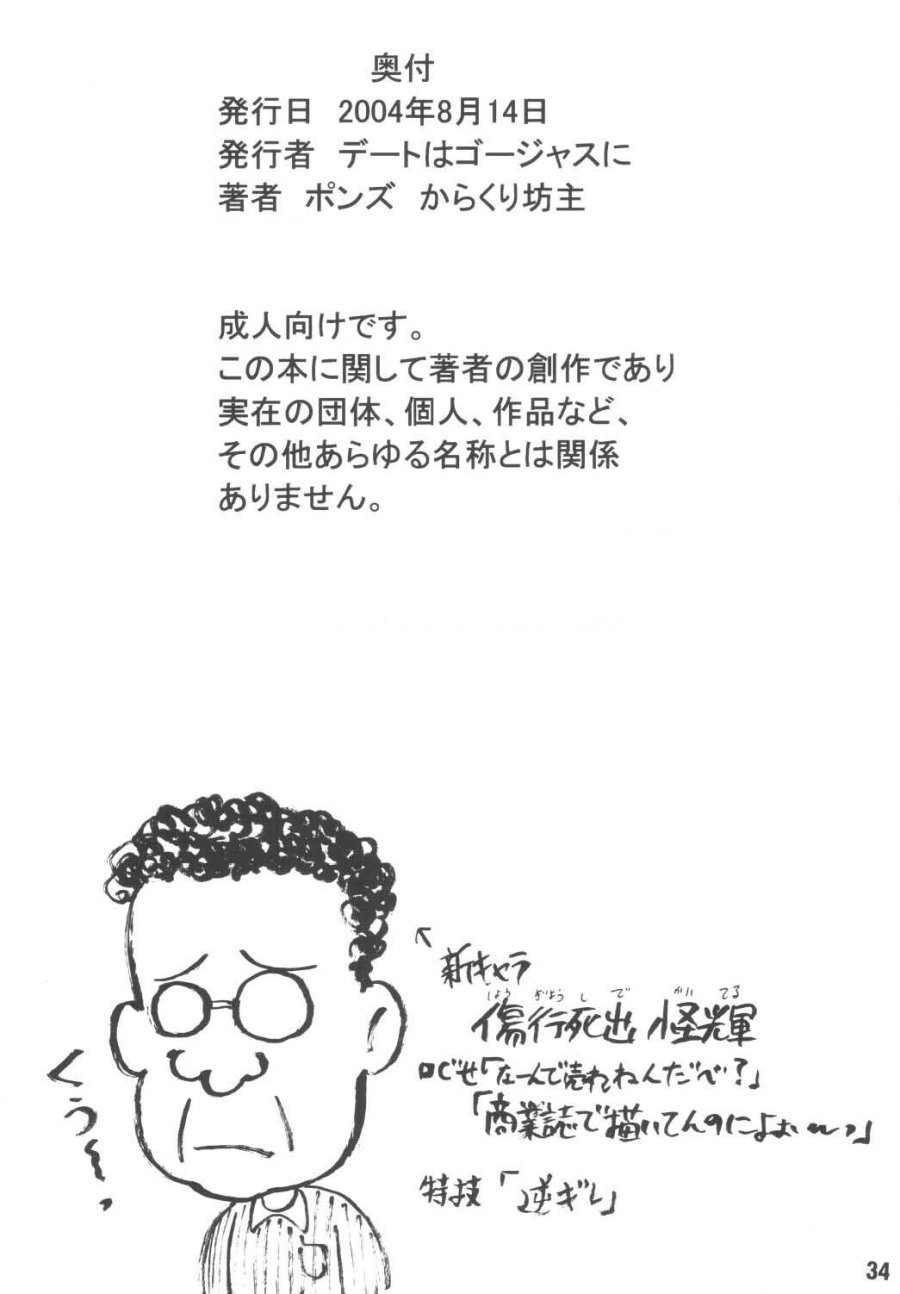 奥付
発行日　2004年8月14日
発行者　デートはゴージャスに
著者　ポンズ　からくり坊主
成人向けです。
この本に関して著者の創作であり
実在の団体、個人、作品など、
その他あらゆる名称とは関係
ありません。
新キャラ
しょう ぎょう し で がい てる
傷行死出 怪輝
口ぐせ「なーんで売れねんだべ?」
「商業誌で描いてんのによぉ〜っ」
特技「逆ギレ」
くぅ〜っ
34